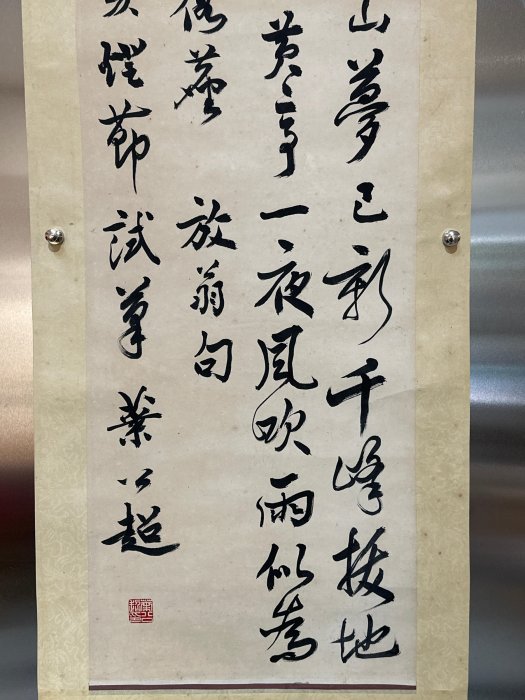 山夢已新千峰拔地
黃亭一夜風吹雨似為
俗塵 放翁句
燈節試筆 葉公超